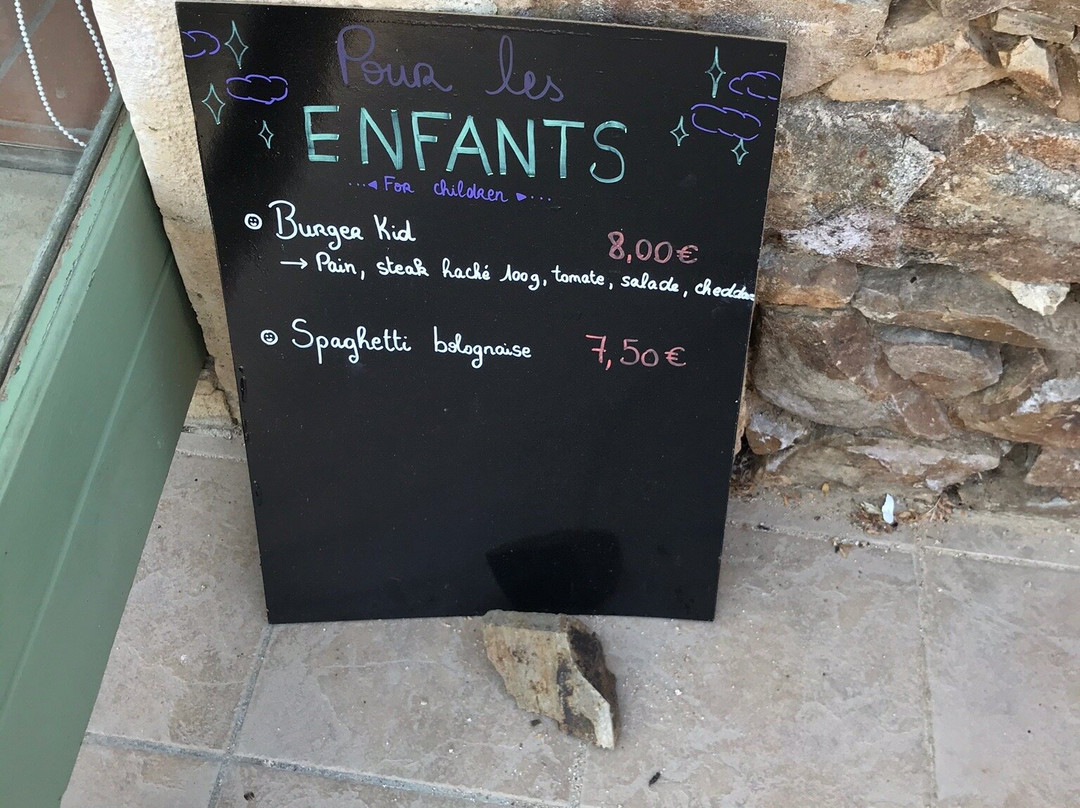 Pour les
ENFANTS
For children
Burger Kid 8,00€
→ Pain, steak haché 100g, tomate, salade, cheddar
Spaghetti bolognaise 7,50€